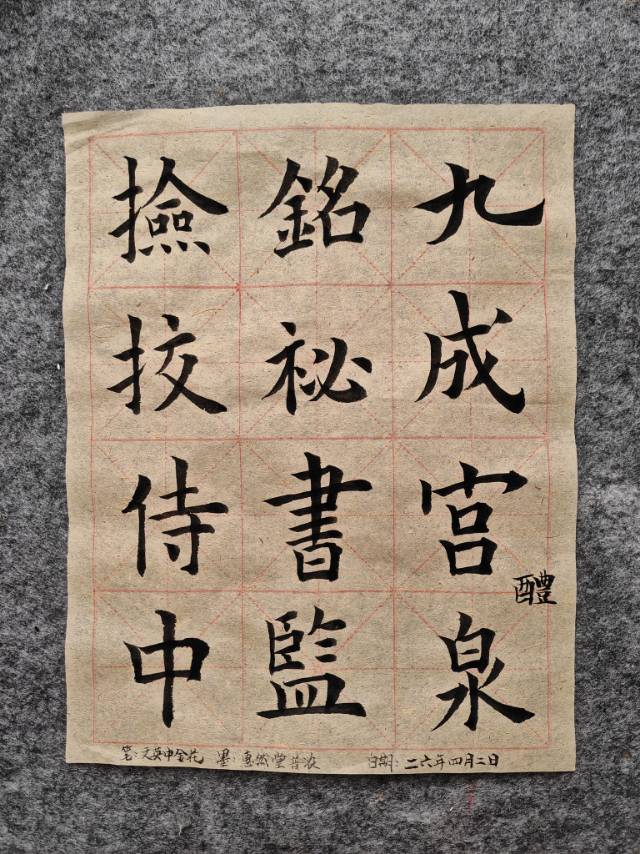 九成宫泉
醴
銘祕書監
撿挍侍中
笔：文英中全花 墨：惠然堂普液 日期：二六年四月二日